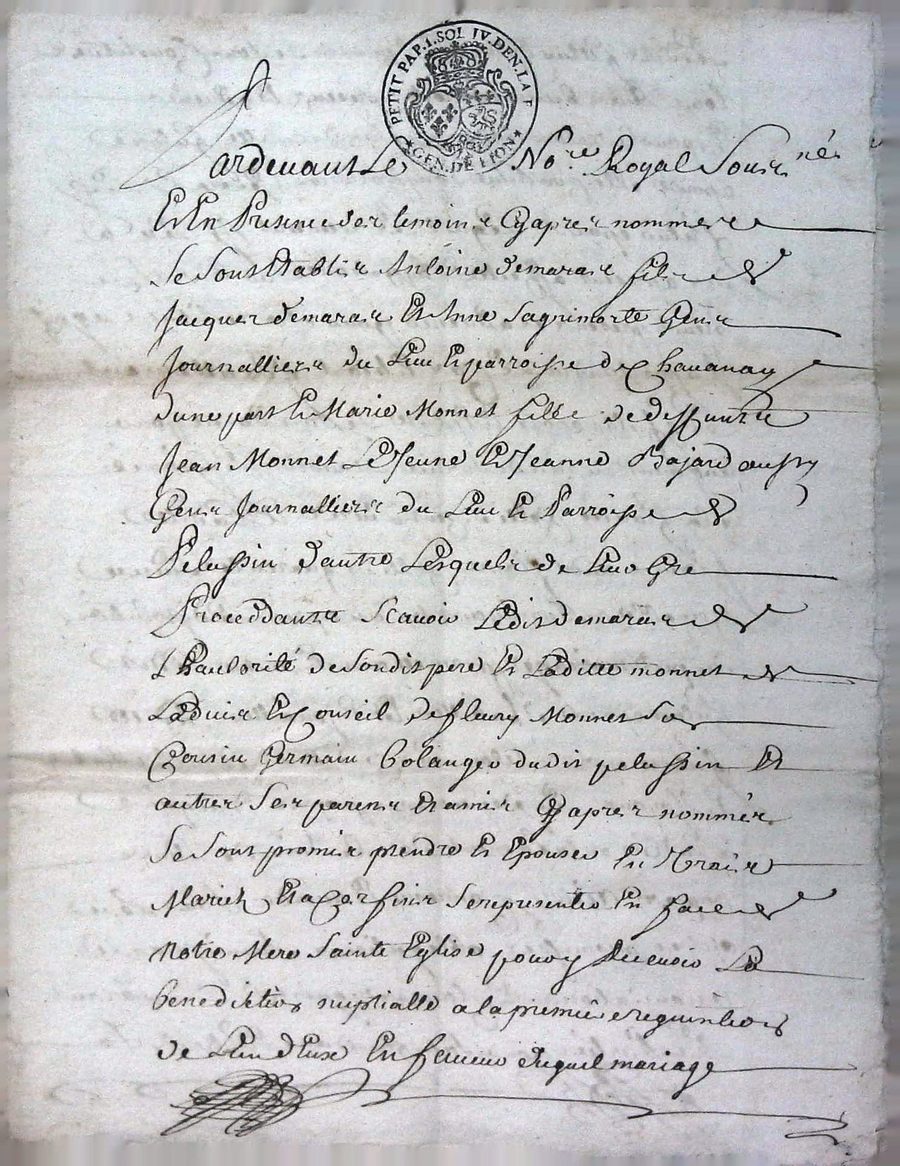 PETIT PAP. 1. SOL IV. DEN. LA F
★ GEN. DE LION ★
Pardevant Le No.re Royal Sous.né
Et En Presence des temoins Cy apres nommes
se sont Etablis Antoine demaras fils de
Jacques demaras Et Anne Sagnimorte Gens
Journalliers du Lieu Et parroisse de Chavanay
dune part Et Marie Monnet fille de deffunts
Jean Monnet Le Jeune Et Jeanne Bajard aussy
Gens Journalliers du Lieu Et Parroisse de
Pelussin d'autre Lesquels de Leur Gre
Proceddants Scavoir Ledit demaras de
Lhautorité de Sondit pere Et Laditte monnet de
Ladvis Et Conseil de fleury Monnet So
Cousin Germain bolanger dudit pelussin Et
autres Ses parens Et amis Cy apres nommés
Se Sont promis prendre Et Epouser En Vrais
Mariés Et a Ces fins Se representer En face de
notre Mere Sainte Eglise pour y Recevoir La
benediction nuptialle a la premiere requisition
de Lun deux En faveur duquel mariage